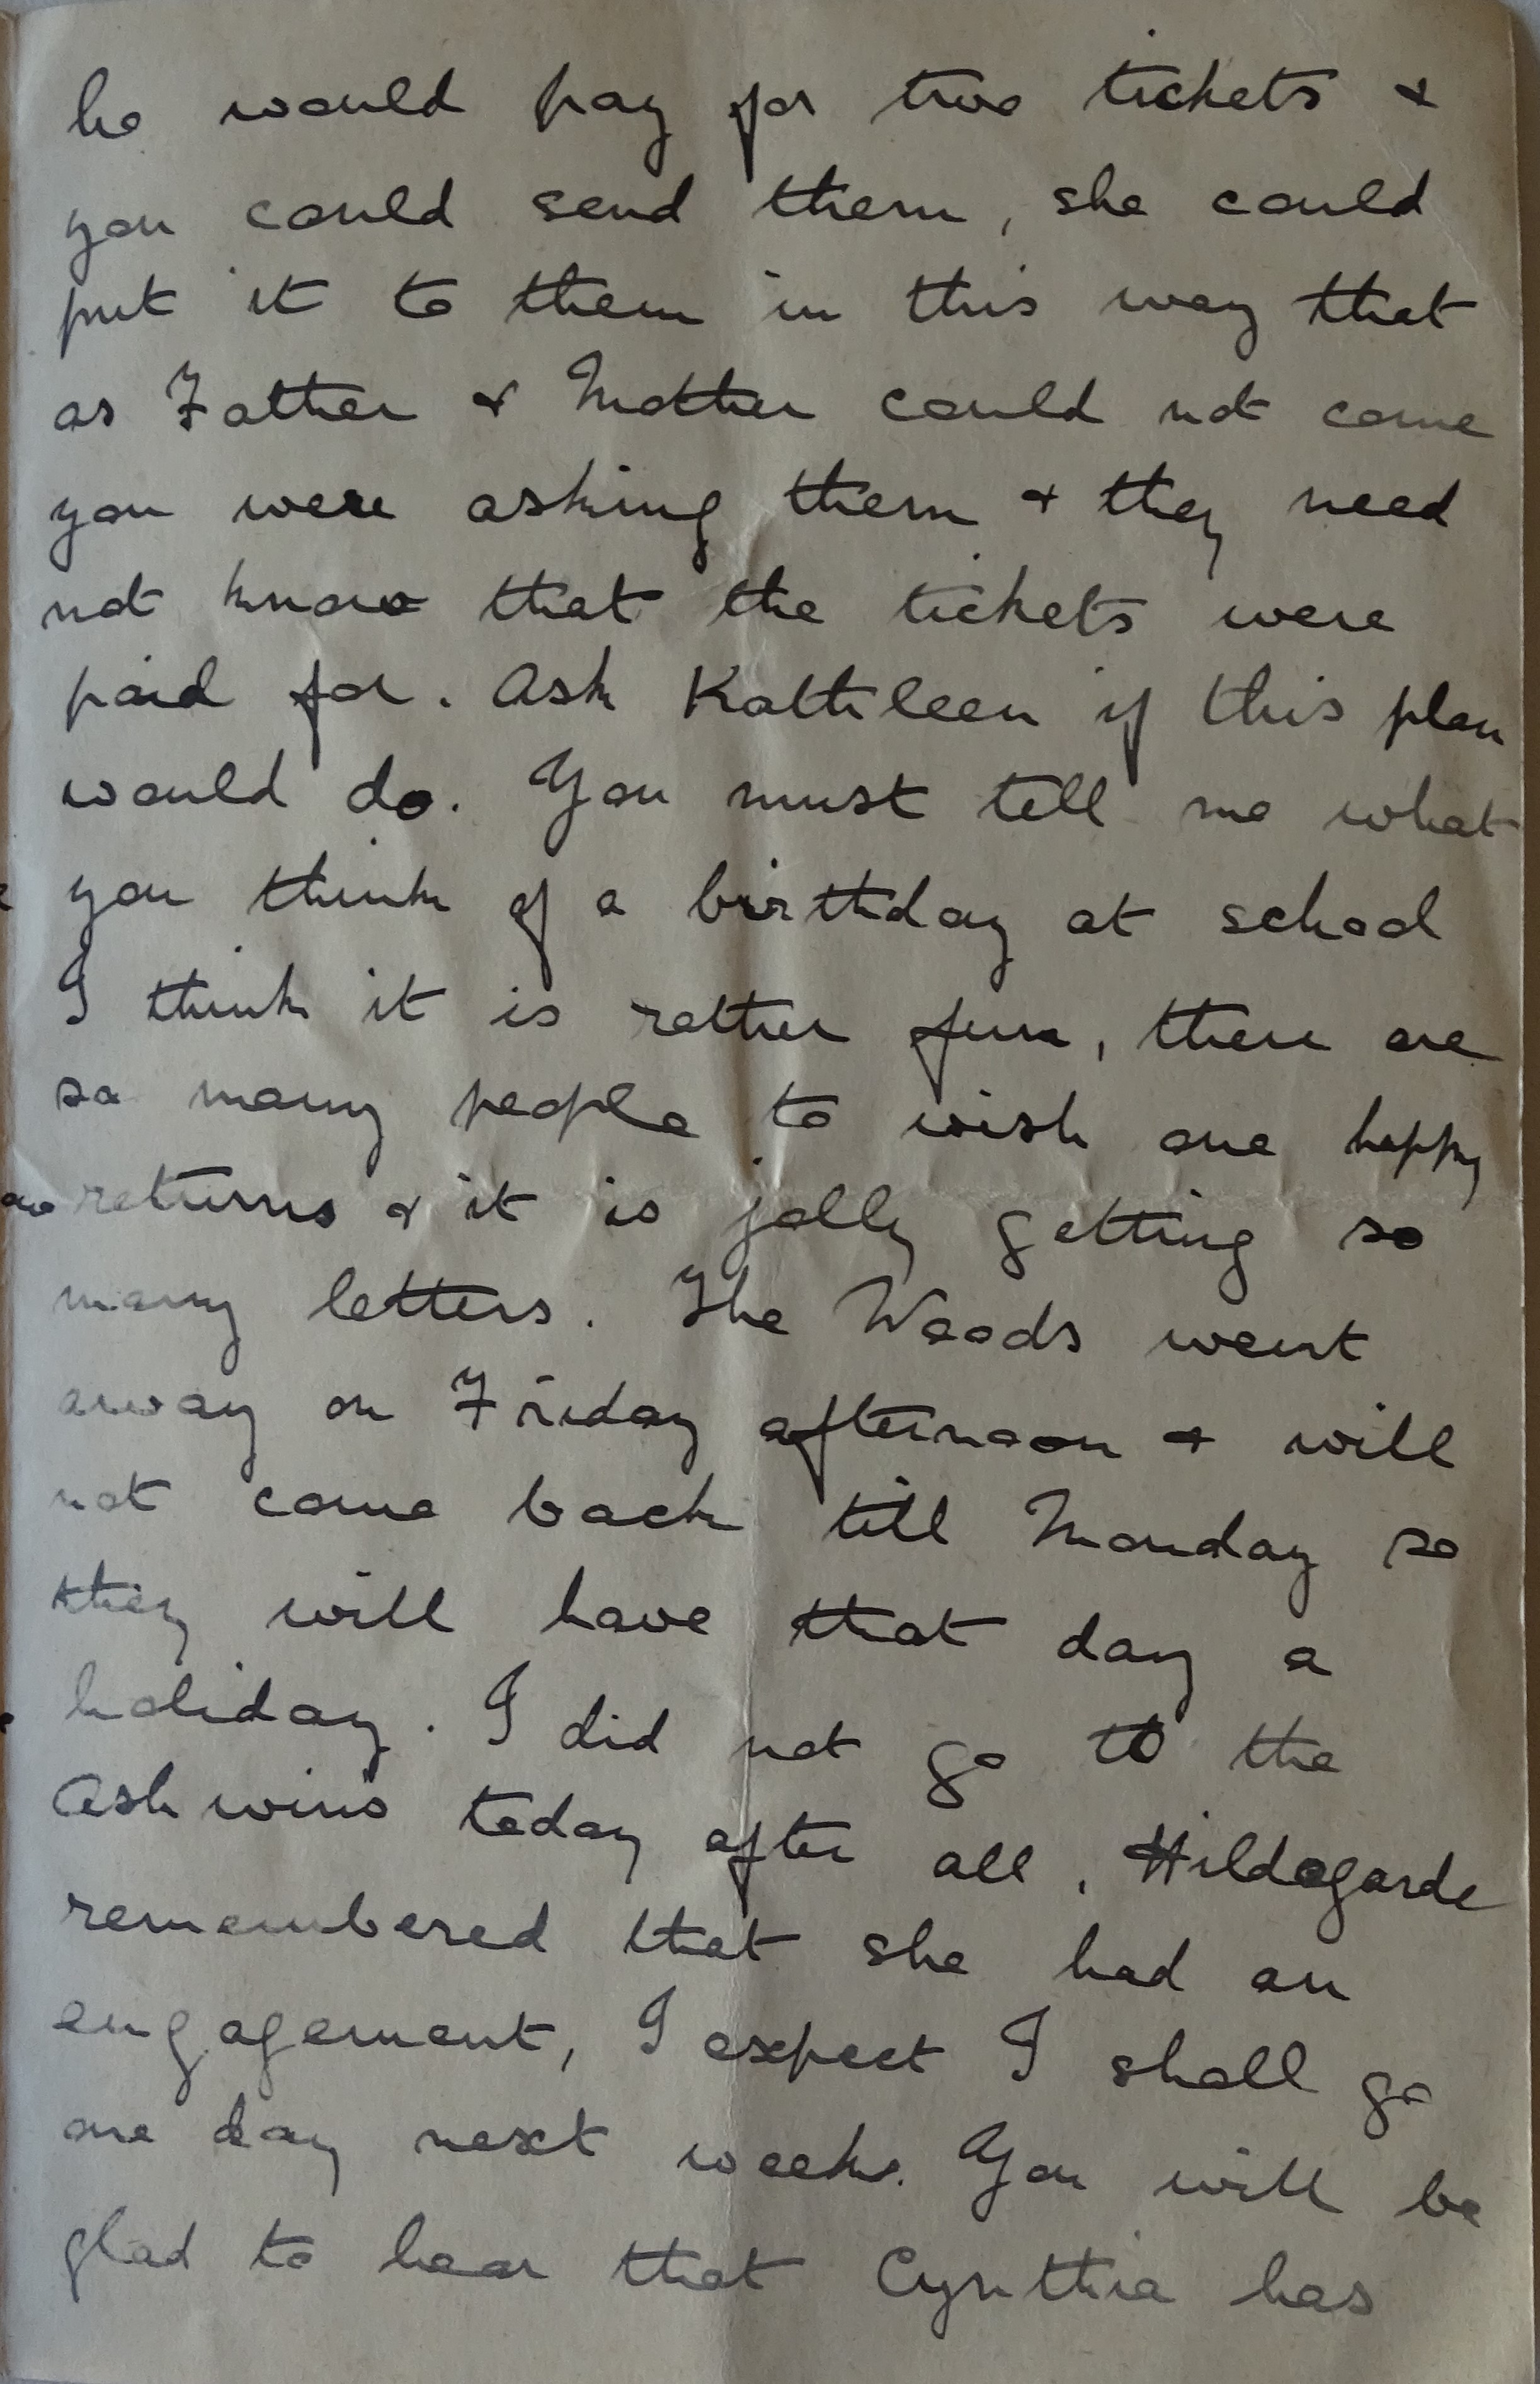 he would pay for two tickets &
you could send them, she could
put it to them in this way that
as Father & Mother could not come
you were asking them & they need
not know that the tickets were
paid for. Ask Kathleen if this plan
would do. You must tell me what
you think of a birthday at school
I think it is rather fun, there are
so many people to wish one happy
returns & it is jolly getting so
many letters. The Woods went
away on Friday afternoon & will
not come back till Monday so
they will have that day a
holiday. I did not go to the
Ashwins today after all, Hildegarde
remembered that she had an
engagement, I expect I shall go
one day next week. You will be
glad to hear that Cynthia has